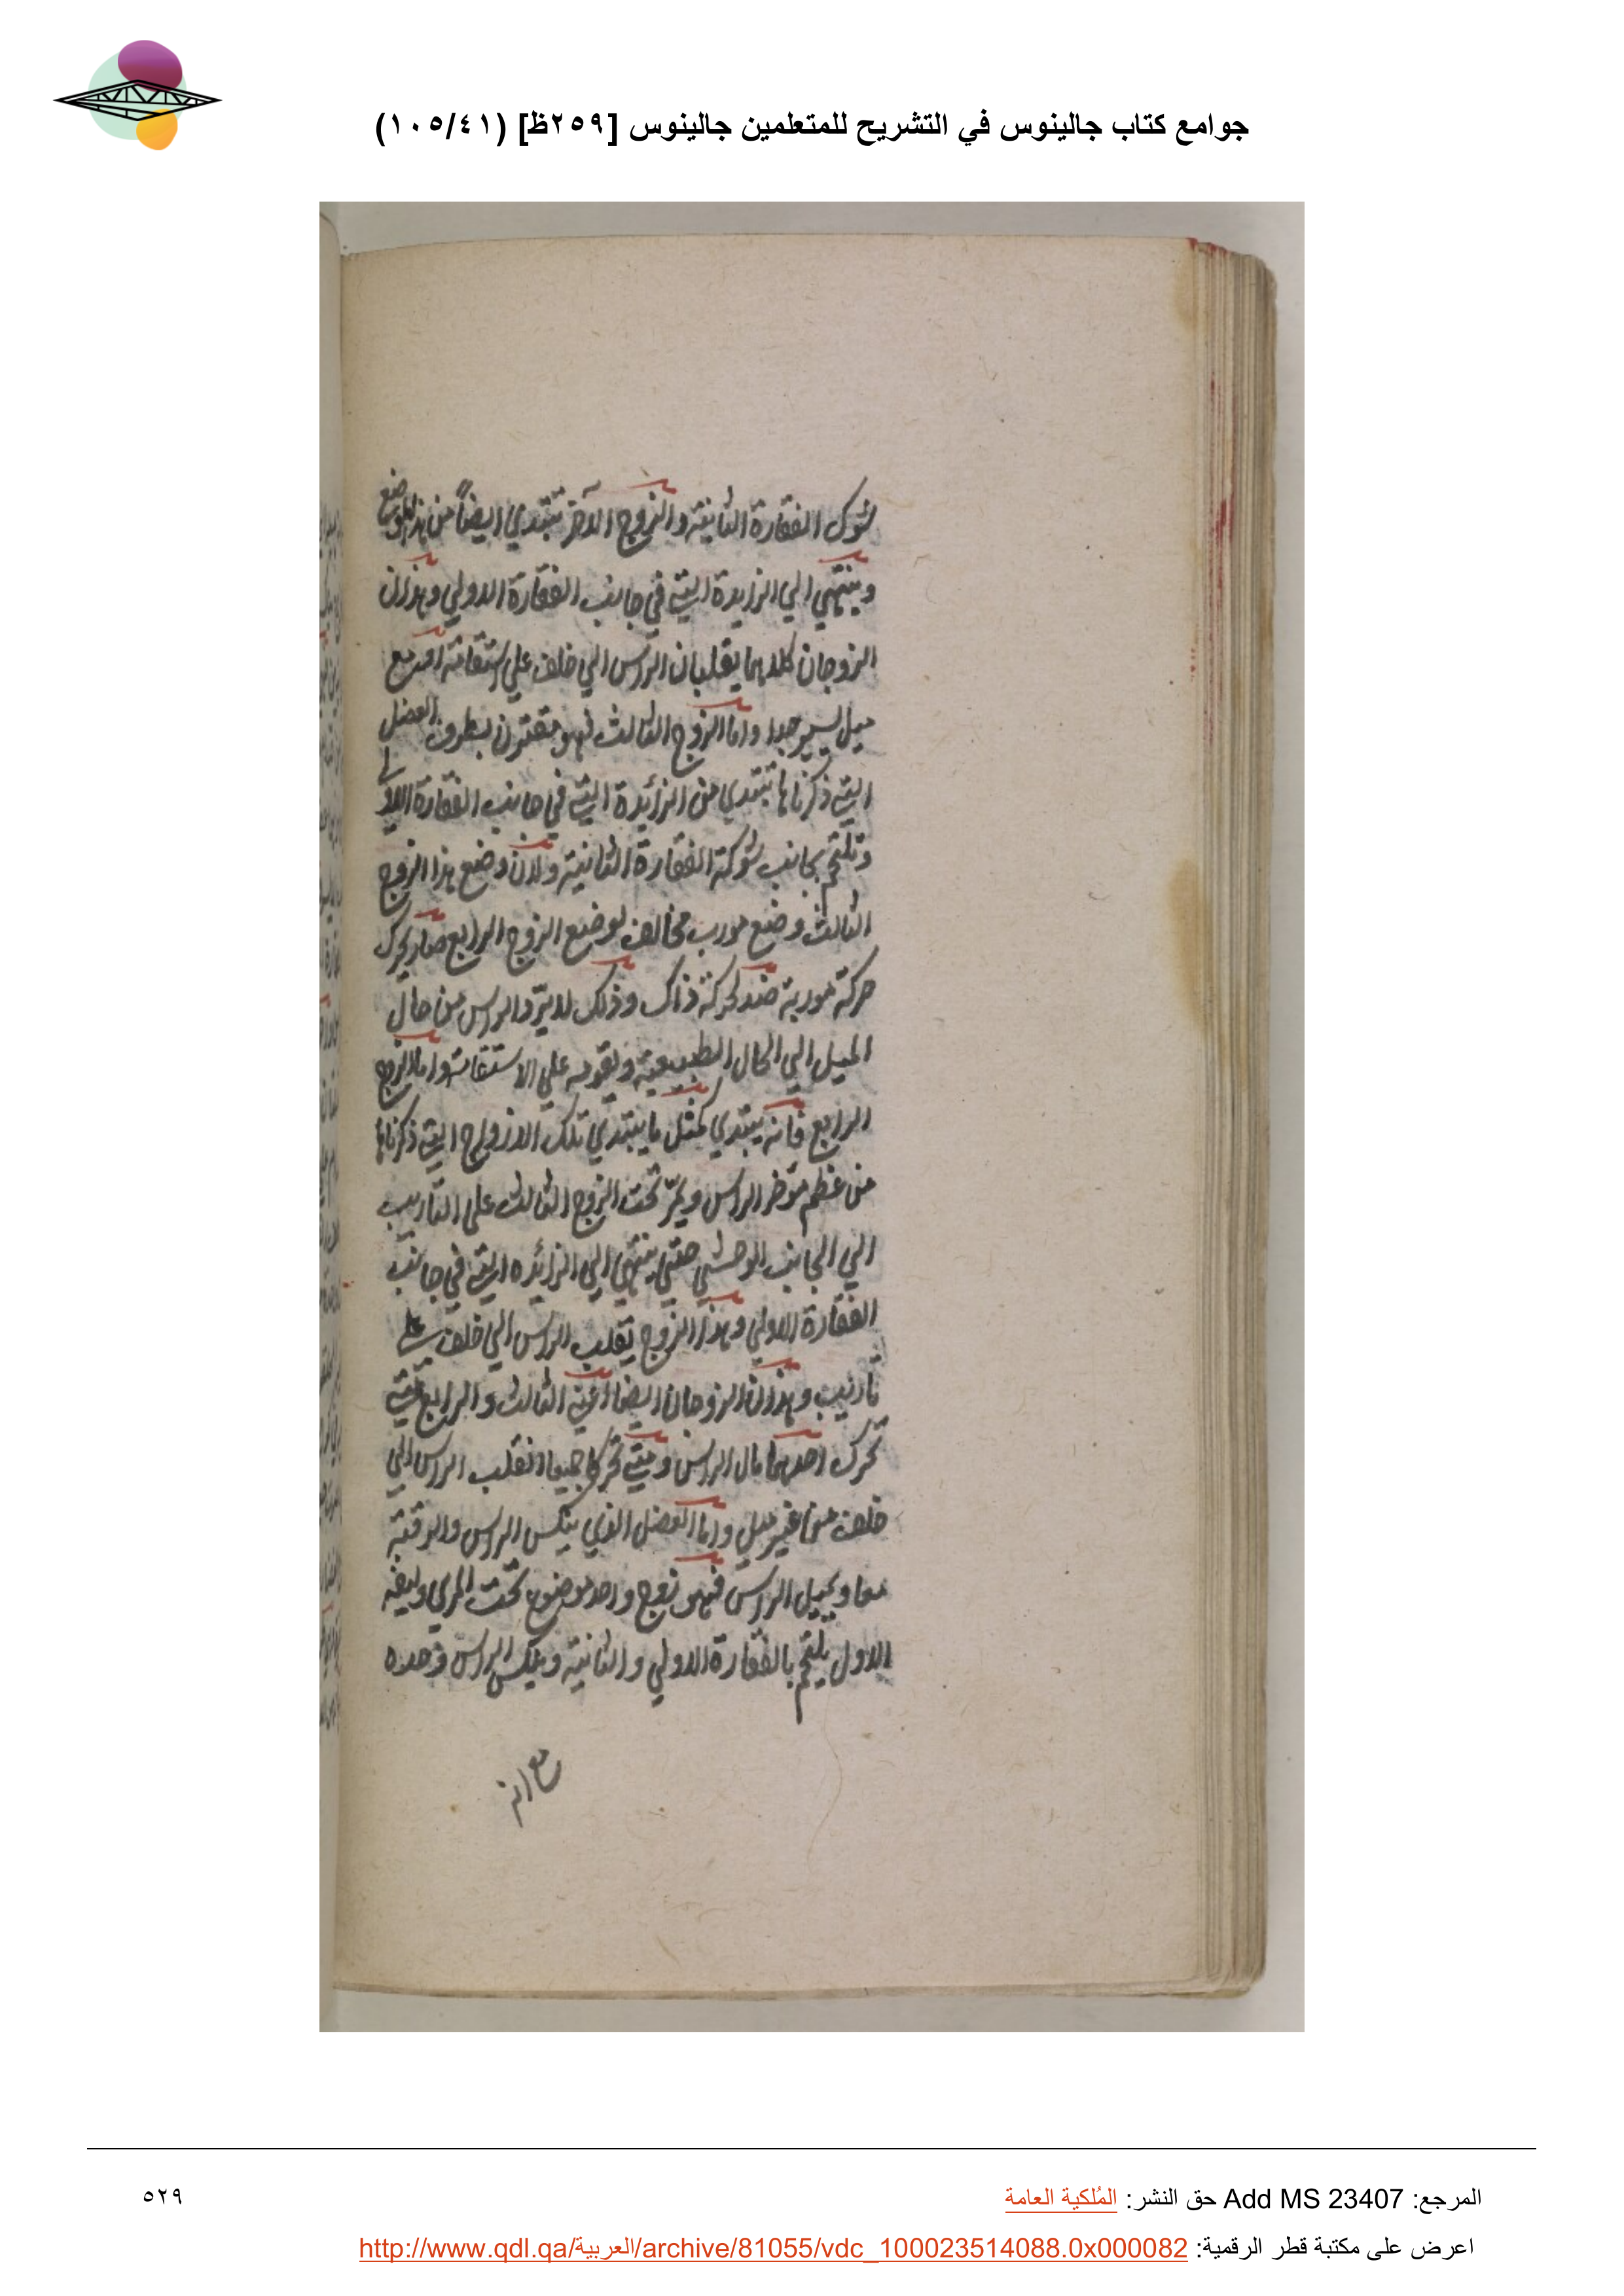 جوامع كتاب جالينوس في التشريح للمتعلمين جالينوس [٢٥٩ظ] (١٠٥/٤١)
شوك الفقارة الثانية والزوج الآخر تبتدي ايضاً من هذا الموضع
وينتهي الي الزايدة التي في جانب الفقارة الاولي وهذان
الزوجان كلاهما يقلبان الراس الي خلف علي استقامة مع
ميل يسير جدا واما الزوج الثالث فهو مقترن بطرف العضل
التي ذكرناها تبتدي من الزائدة التي في جانب الفقارة الاولي
وتلتحم بجانب شوكة الفقارة الثانية ولان وضع هذا الزوج
الثالث وضع مورب مخالف لوضع الزوج الرابع صار يحرك
حركة موربة ضد لحركة ذاك وذلك لانه يرد الراس من حال
الميل الي الحال الطبيعية ويقومه علي الاستقامة واما الزوج
الرابع فانه يبتدي كمثل ما يبتدي تلك الازواج التي ذكرناها
من عظم موخر الراس ويمرّ تحت الزوج الثالث علي التاريب
الي الجانب الوحشي حتي ينتهي الي الزائده التي في جانب
الفقارة الاولي وهذا الزوج يقلب الراس الي خلف علي
تأريب وهذان الزوجان ايضا اعني الثالث والرابع متي
تحرك احدهما مال الراس ومتي تحركا جميعا انقلب الراس الي
خلف من غير ميل واما العضل الذي ينكس الراس والرقبة
معا ويميل الراس فهو زوج واحد موضوع تحت المري وليفه
الاول يلتحم بالفقارة الاولي والثانية وينكس الراس وحده
مع انه
المرجع: Add MS 23407 حق النشر: المُلكية العامة
٥٢٩
اعرض على مكتبة قطر الرقمية: http://www.qdl.qa/العربية/archive/81055/vdc_100023514088.0x000082